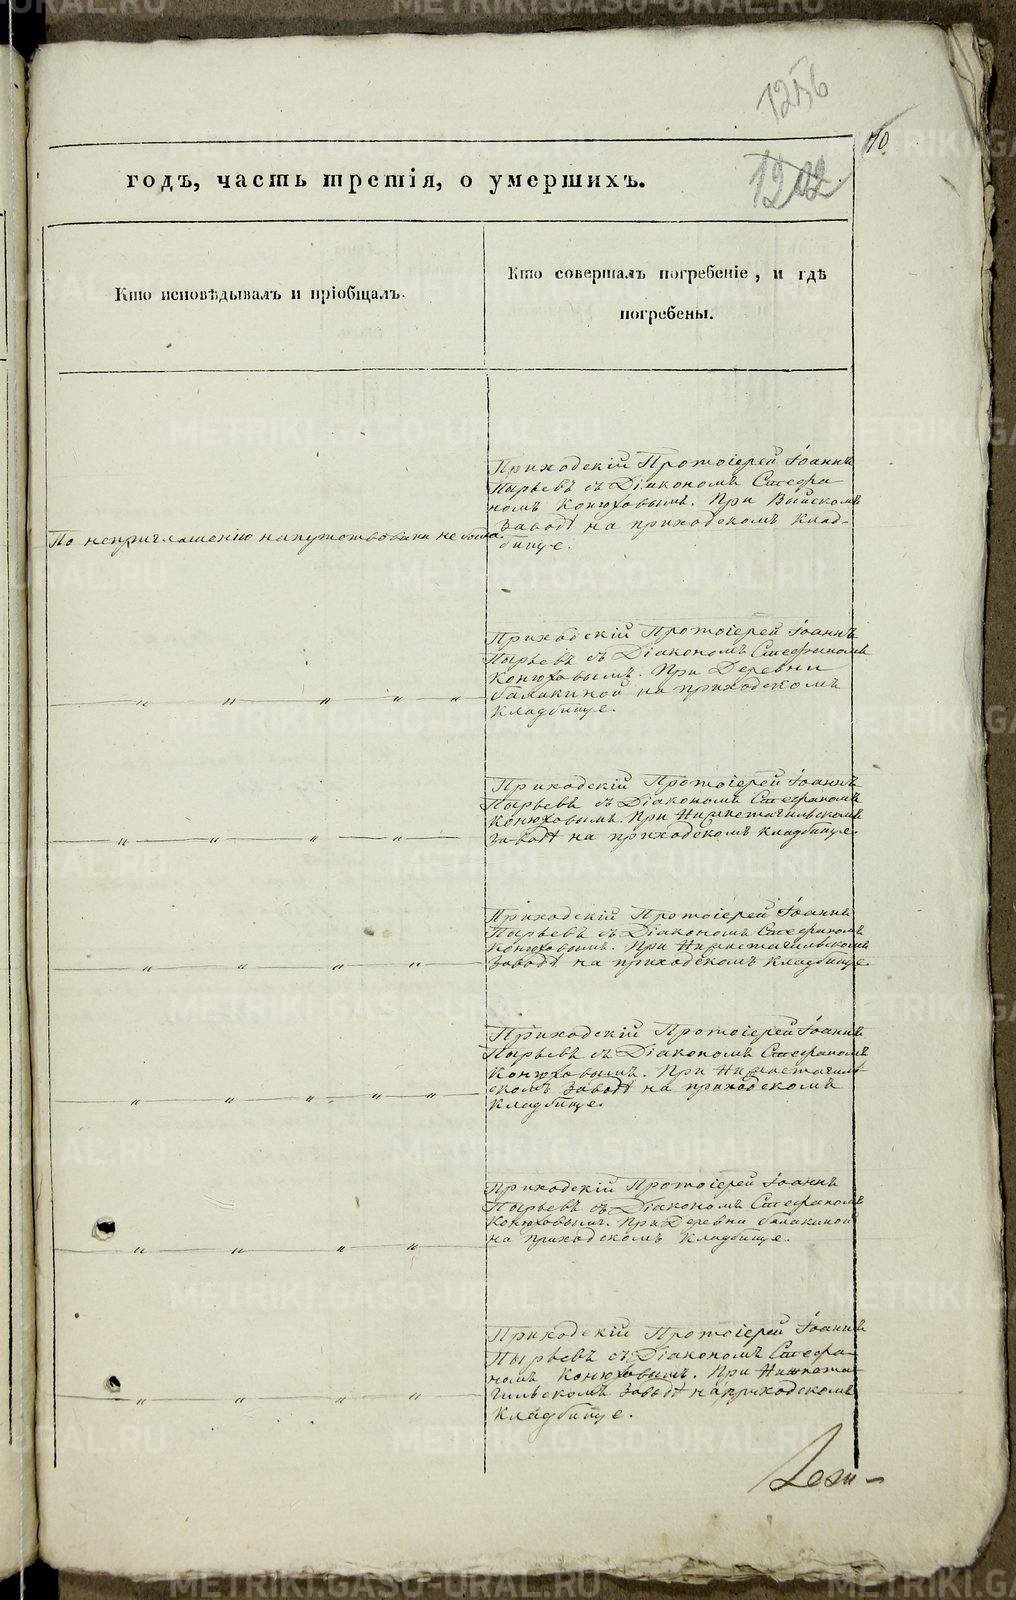 1256
1202
70.
годъ, часть третія, о умершихъ.
Кто исповѣдывалъ и пріобщалъ.
Кто совершалъ погребеніе, и гдѣ
погребены.
По неприглашенію напутствована не была.
Приходскій Протоіерей Іоаннъ
Пырьевъ съ Діакономъ Стефа
номъ Конюховымъ. При Выйскомъ
Заводѣ на приходскомъ клад-
бище.
„ „ „ „ „
Приходскій Протоіерей Іоаннъ
Пырьевъ съ Діакономъ Стефаномъ
Конюховымъ. При Деревни
балакиной на приходскомъ
кладбище.
„ „ „ „
Приходскій Протоіерей Іоаннъ
Пырьевъ съ Діакономъ Стефаномъ
Конюховымъ. При Нижнетагильскомъ
заводѣ на приходскомъ кладбище.
„ „ „ „
Приходскій Протоіерей Іоаннъ
Пырьевъ съ Діакономъ Стефаномъ
Конюховымъ. При Нижнетагильскомъ
Заводѣ на приходскомъ кладбище.
„ „ „ „ „
Приходскій Протоіерей Іоаннъ
Пырьевъ съ Діакономъ Стефаномъ
Конюховымъ. При Нижнетагиль
скомъ Заводѣ на приходскомъ
кладбище.
„ „ „ „
Приходскій Протоіерей Іоаннъ
Пырьевъ съ Діакономъ Стефаномъ
Конюховымъ. При Деревни балакиной
на приходскомъ кладбище.
„ „ „ „
Приходскій Протоіерей Іоаннъ
Пырьевъ съ Діакономъ Стефа-
номъ Конюховымъ. При Нижнета-
гильскомъ Заводѣ на приходскомъ
кладбище.
METRIKI.GASO-URAL.RU